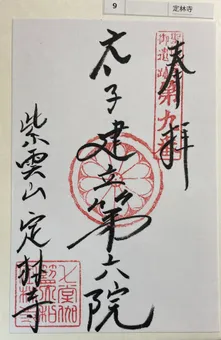 9
定林寺
奉拝
第九
太子建立第六院
紫雲山 定林寺
七堂伽